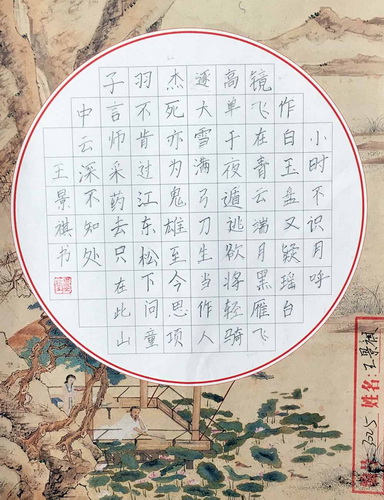 小时不识月呼
作白玉盘又疑瑶白
镜飞在青云端月黑雁飞
高单于夜遁逃欲将轻骑
逐大雪满弓刀生当作人
杰死亦为鬼雄至今思项
羽不肯过江东松下问童
子言师采药去只在此山
中云深不知处
王景祺书
姓名:王景祺